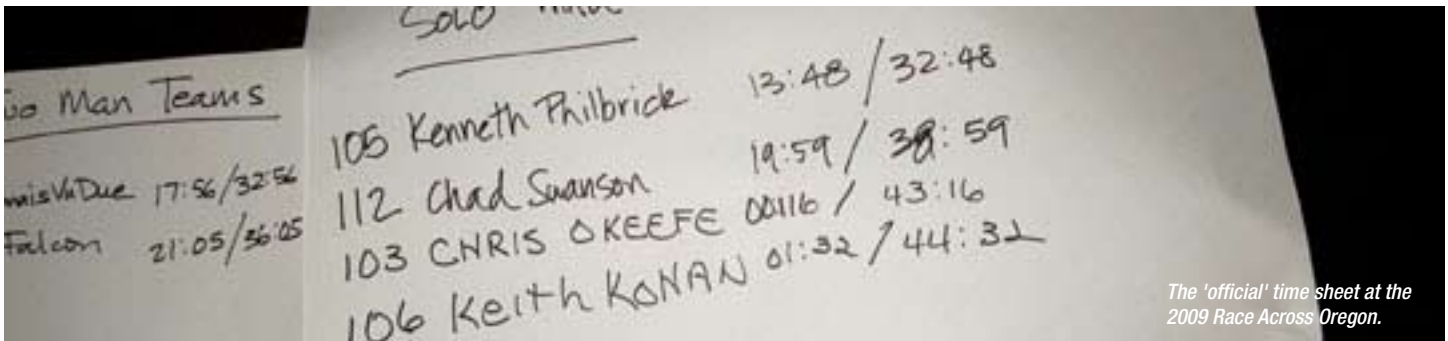 Man Teams
17:56/32:56
Falcon 21:05/36:05
SOLO
105 Kenneth Philbrick 13:48 / 32:48
112 Chad Swanson 19:59 / 38:59
103 CHRIS OKEEFE 00:16 / 43:16
106 Keith KONAN 01:32 / 44:32
The 'official' time sheet at the
2009 Race Across Oregon.